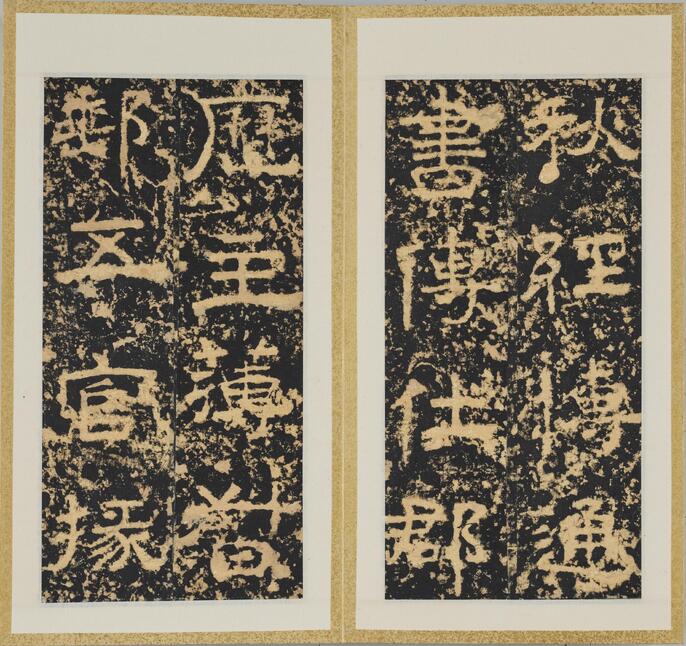 秋經博通
書傳仕郡
歷主薄督
郵五官掾